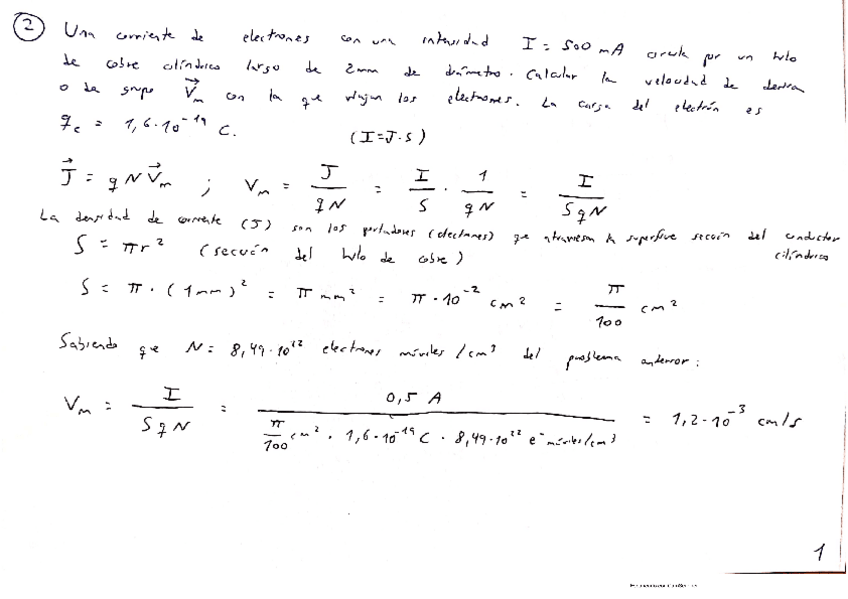 2 Una corriente de electrones con una intensidad I = 500 mA circula por un hilo
de cobre cilíndrico largo de 2mm de diámetro. Calcular la velocidad de deriva
o de grupo V⃗m con la que viajan los electrones. La carga del electrón es
qe = 1,6·10⁻¹⁹ C. (I=J·S)
J⃗ = q N V⃗m ; Vm = J/(qN) = I/S · 1/(qN) = I/(SqN)
La densidad de corriente (J) son los portadores (electrones) que atraviesan la superficie sección del conductor
cilíndrico
S = πr² (sección del hilo de cobre)
S = π · (1mm)² = π mm² = π·10⁻² cm² = π/100 cm²
Sabiendo que N = 8,49·10²² electrones móviles/cm³ del problema anterior:
Vm = I/(SqN) = 0,5 A/(π/100 cm² · 1,6·10⁻¹⁹ C · 8,49·10²² e⁻ móviles/cm³) = 1,2·10⁻³ cm/s
1